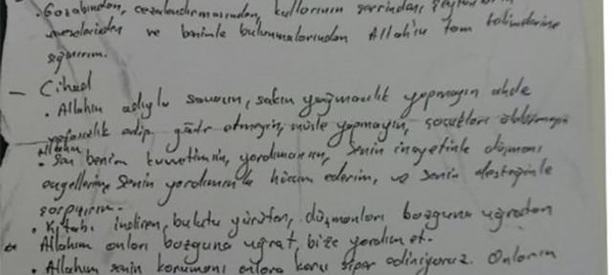 . Gazabından, cezalandırmasından, kullarının şerrinden, şeytanların
vesveselerinden ve benimle bulunmalarından Allah'ın tam kelimelerine
sığınırım.
— Cihad
. Allahın adıyla savaşın, sakın yağmacılık yapmayın ahde
vefasızlık edip gadr etmeyin, müsle yapmayın, çocukları öldürmeyin
Allahım
. Sen benim kuvvetimsin, yardımcımsın, Senin inayetinle düşmanın
engellerine Senin yardımınla hücum ederim, ve Senin desteğinle
çarpışırım.
. Kitabı indiren, bulutu yürüten, düşmanları bozguna uğratan
Allahım onları bozguna uğrat, bize yardım et.
. Allahım senin korumanı onlara karşı siper ediniyoruz. Onların